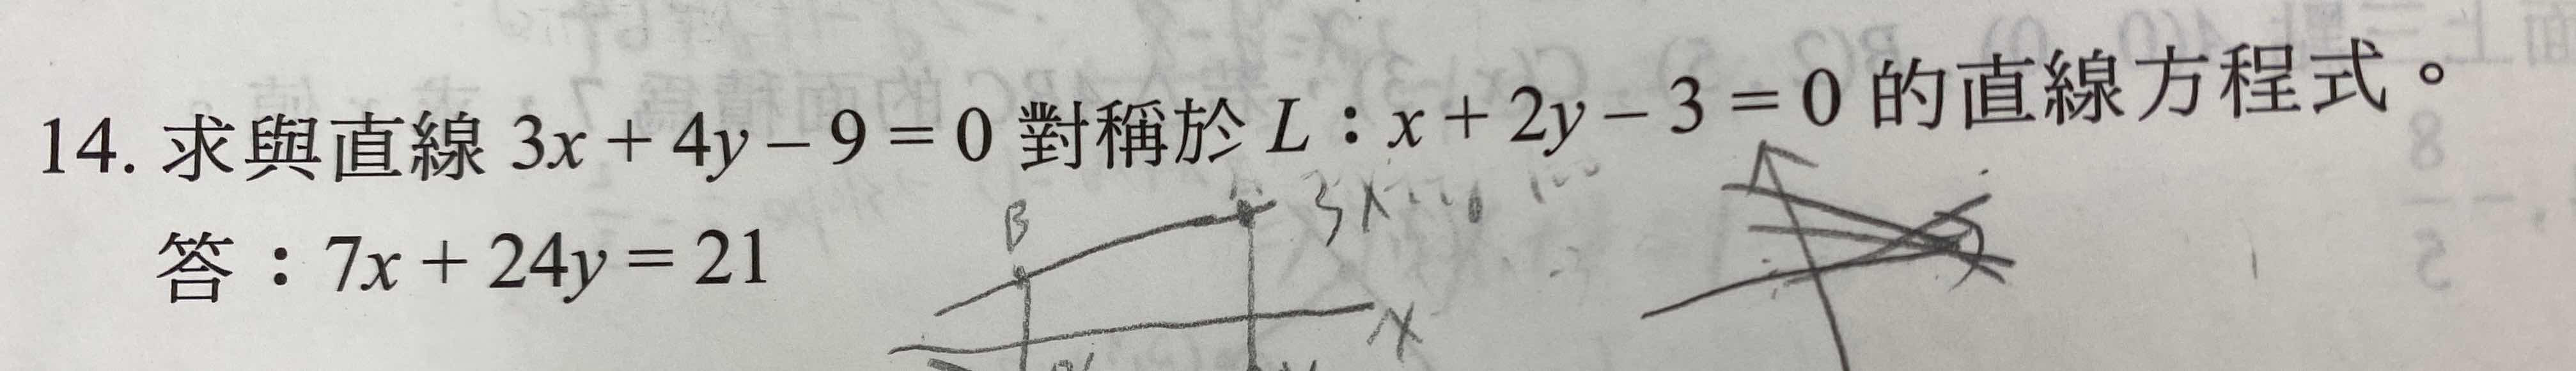 14. 求與直線 3x + 4y – 9 = 0 對稱於 L：x + 2y – 3 = 0 的直線方程式。
答：7x + 24y = 21
B
3x
x